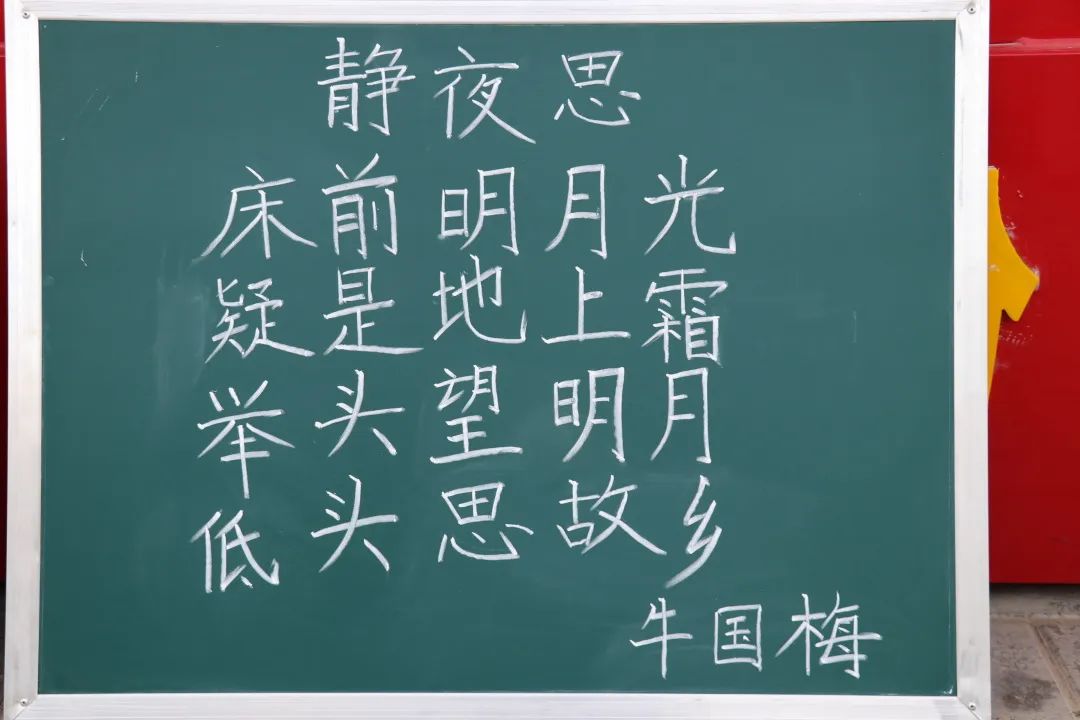 静夜思
床前明月光
疑是地上霜
举头望明月
低头思故乡
牛国梅